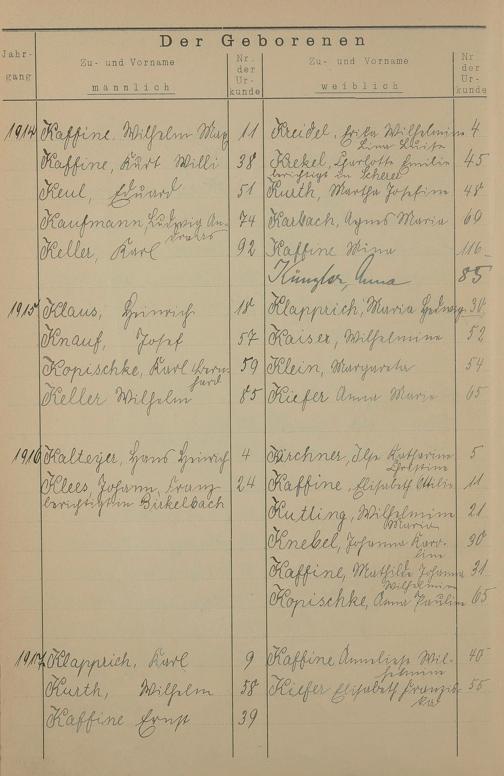 Der Geborenen
Jahr-
gang
Zu- und Vorname
männlich
Nr.
der
Ur-
kunde
Zu- und Vorname
weiblich
Nr.
der
Ur-
kunde
1914 Kaffine, Wilhelm Max 11 Kreidel, Erika Wilhelmine 4
Lina Luise
Kaffine, Kurt Willi 38 Krekel, Charlotte Emilie 45
berichtigt in Scherer
Keul, Eduard 51 Kurth, Martha Josefine 48
Kaufmann, Ludwig An- 74 Karbach, Agnes Maria 60
dreas
Keller, Karl 92 Kaffine Mina 116
Künzler, Anna 85
1915 Klaus, Heinrich 18 Klapprich, Maria Hedwig 30
Knauf, Josef 57 Kaiser, Wilhelmine 52
Kopischke, Karl Bern- 59 Klein, Margareta 54
hard
Keller Wilhelm 85 Kiefer Anna Maria 65
1916 Kalteyer, Hans Heinrich 4 Kirchner, Ilse Katharina 5
Christine
Klees, Johann Franz 24 Kaffine, Elisabeth Ottilie 11
berichtigt in Birkelbach
Kutting, Wilhelmine 21
Maria
Knebel, Johanna Karo- 30
line
Kaffine, Mathilde Johanna 31
Wilhelmine
Kopischke, Anna Pauline 65
1917 Klapprich, Karl 9 Kaffine Anneliese Wil- 40
helmine
Kurth, Wilhelm 58 Kiefer Elisabeth Franzis- 55
ka
Kaffine Ernst 39